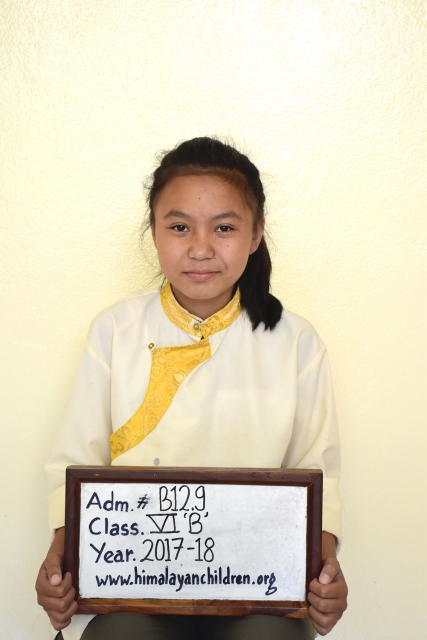 Adm.# B12.9
Class. VI 'B'
Year. 2017-18
www.himalayanchildren.org